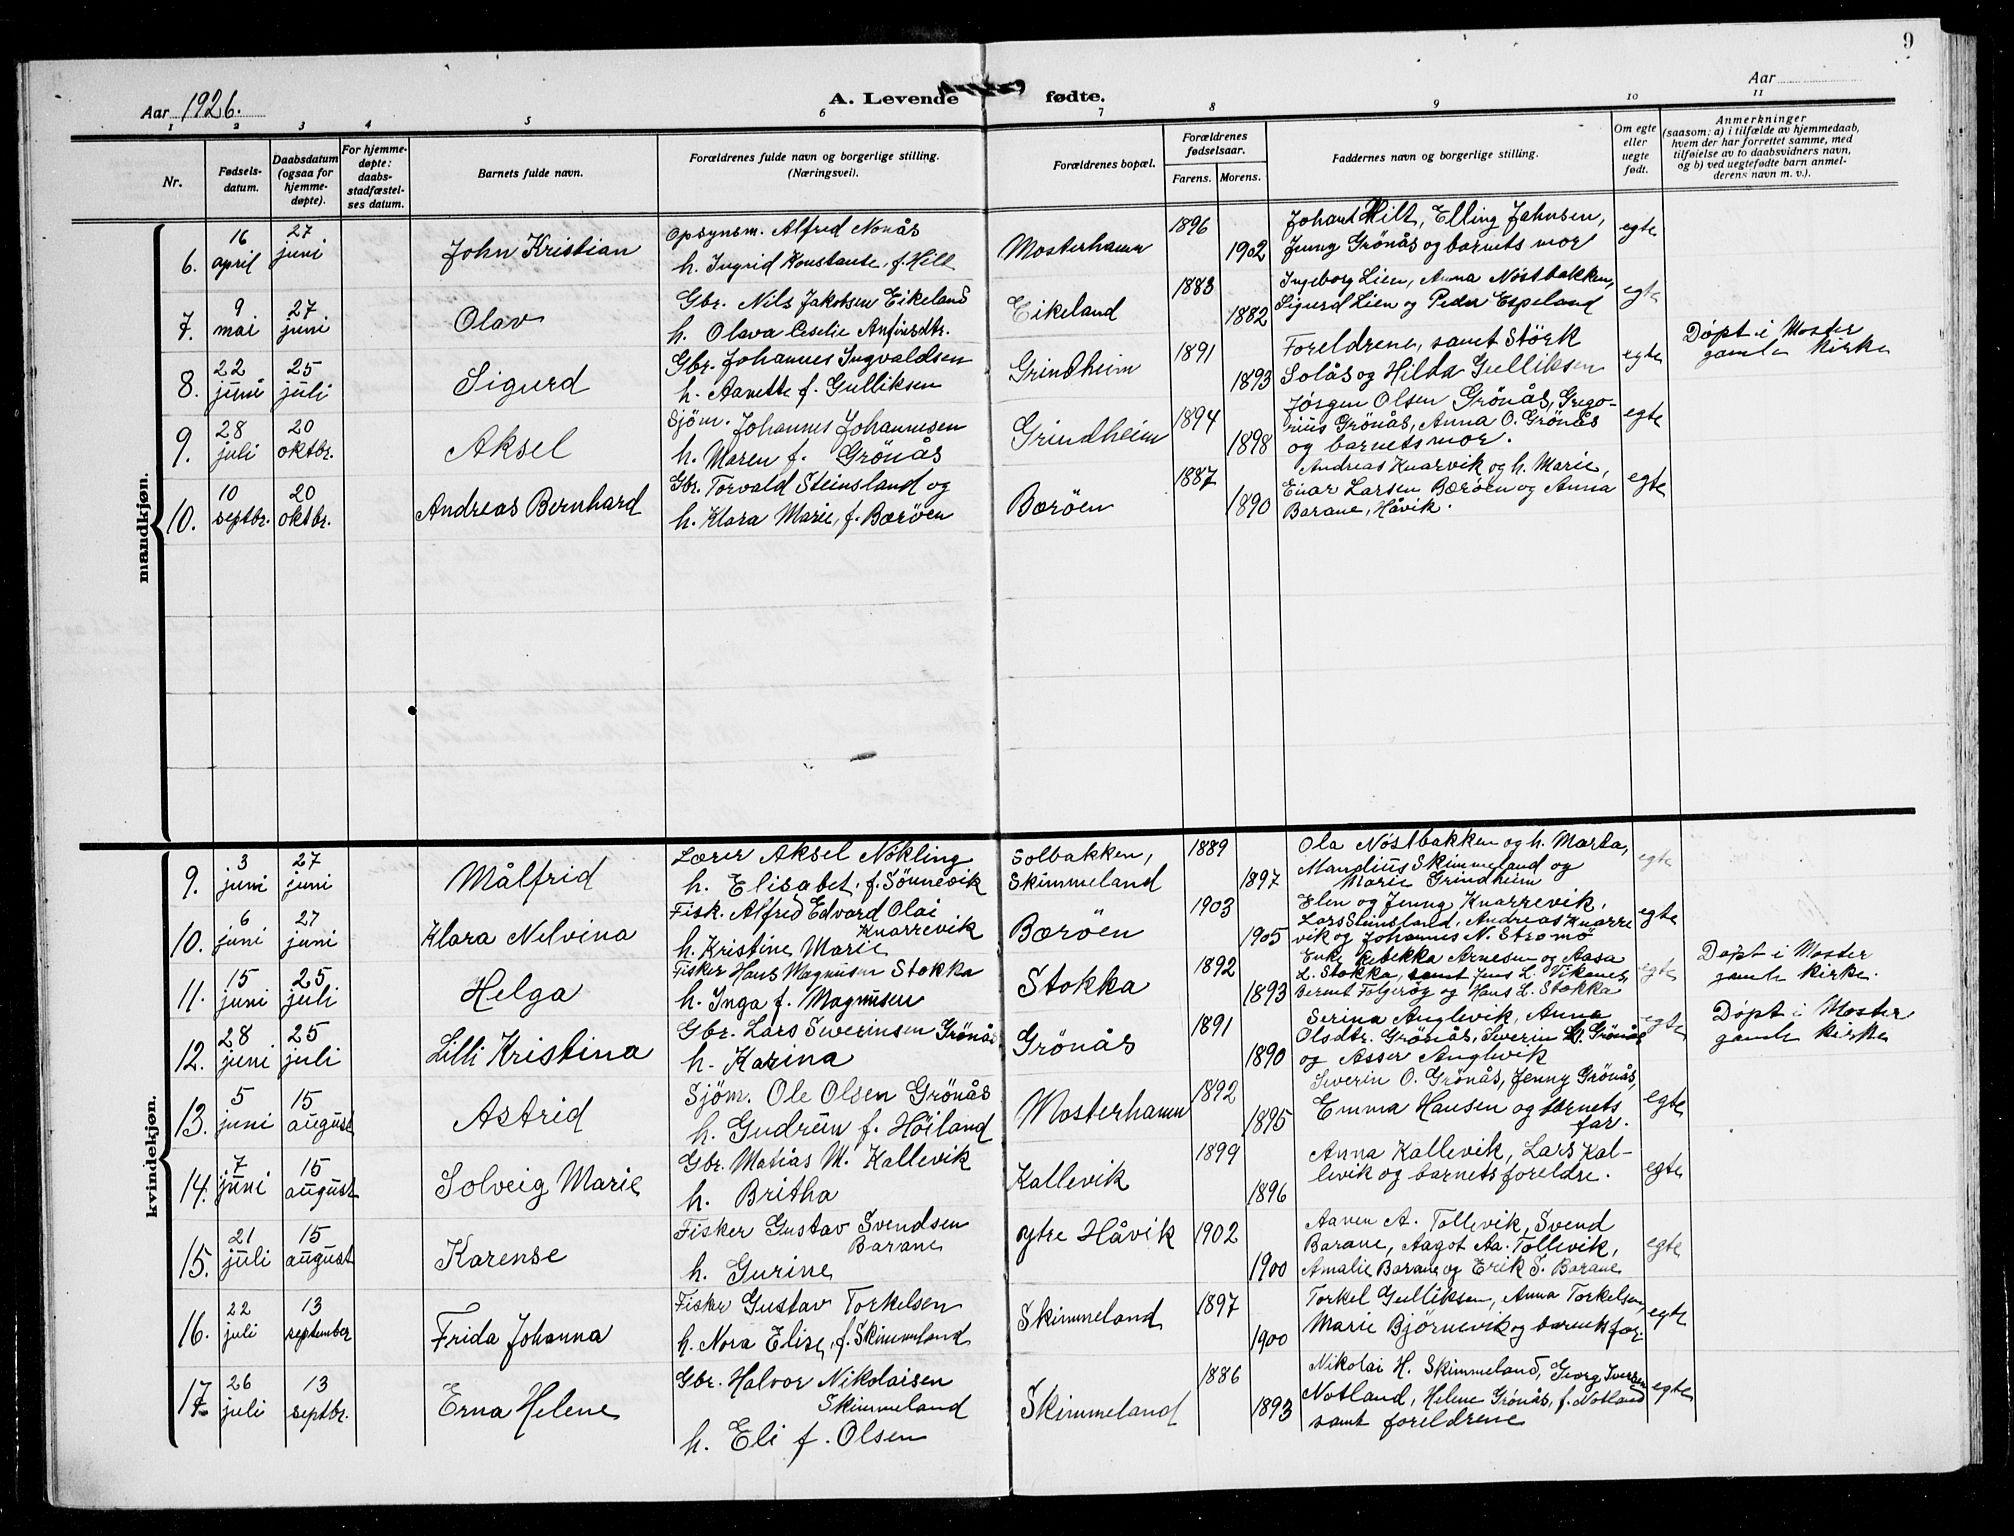 9
Aar 1926.
A. Levende fødte.
Aar
1 2 3 4 5 6 7 8 9 10 11
Nr.
Fødsels-
datum.
Daabsdatum
(ogsaa for
hjemme-
døpte).
For hjemme-
døpte:
daabs-
stadfæstel-
ses datum.
Barnets fulde navn.
Forældrenes fulde navn og borgerlige stilling.
(Næringsvei).
Forældrenes bopæl.
Forældrenes
fødselsaar.
Farens. Morens.
Faddernes navn og borgerlige stilling.
Om egte
eller
uegte
født.
Anmerkninger
(saasom: a) i tilfælde av hjemmedaab,
hvem der har forrettet samme, med
tilføielse av to daabsvidners navn,
og b) ved uegtefødte barn anmel-
derens navn m. v.).
mandkjøn.
6. 16 april 27 juni John Kristian
Opsynsm. Alfred Nonås
h. Ingrid Konstanse, f. Hilt
Mosterhamn 1896 1902
Johan Hilt, Elling Jahnsen,
Jenny Grönås og barnets mor
egte
7. 9 mai 27 juni Olav
Gbr. Nils Jakobsen Eikeland
h. Olava Ceselie Anfinsdtr.
Eikeland 1883 1882
Ingeborg Lien, Anna Nöstbakken,
Sigurd Lien og Peder Espeland
egte
8. 22 juni 25 juli Sigurd
Gbr. Johannes Ingvaldsen
h. Aanette f. Gulliksen
Grindheim 1891 1893
Foreldrene, samt Störk
Solås og Hilda Gulliksen
egte
Døpt i Moster
gamle kirke
9. 28 juli 20 oktbr. Aksel
Sjöm. Johannes Johannesen
h. Maren f. Grönås
Grindheim 1894 1898
Jørgen Olsen Grönås, Grego-
rius Grönås, Anna O. Grönås
og barnets mor.
egte
10. 10 septbr. 20 oktbr. Andreas Bernhard
Gbr. Torvald Steinsland og
h. Klara Marie, f. Bœröen
Bœröen 1887 1890
Andreas Knarvik og h. Marie,
Einar Larsen Bœröen og Anna
Barane, Håvik.
egte
kvindekjøn.
9. 3 juni 27 juni Målfrid
Lœrer Aksel Nökling
h. Elisabet, f. Sönnevik
Solbakken,
Skimmeland 1889 1897
Ola Nöstbakken og h. Marta,
Mandius Skimmeland og
Marie Grindheim
egte
10. 6 juni 27 juni Klara Nelvina
Fisk. Alfred Edvard Olai
Knarrevik
h. Kristine Marie
Bœröen 1903 1905
Elen og Jenny Knarrevik,
Lars Steinsland, Andreas Knarre
vik og Johannes N. Stramö
egte
11. 15 juni 25 juli Helga
Fisker Hans Magnusen Stokka
h. Inga f. Magnusen
Stokka 1892 1893
Enk. Rebekka Arnesen og Aasa
L. Stokka, samt Jens L. Vikanes,
Bernt Folgeröy og Hans L. Stokka
egte
Døpt i Moster
gamle kirke.
12. 28 juni 25 juli Lilli Kristina
Gbr. Lars Swerinsen Grönås
h. Karina
Grönås 1891 1890
Serina Anglevik, Anna
Olsdtr. Grönås, Swerin L. Grönås
og Asser Anglevik
egte
Døpt i Moster
gamle kirke
13. 5 juni 15 august Astrid
Sjöm. Ole Olsen Grönås
h. Gudrun f. Höiland
Mosterhamn 1892 1895
Severin O. Grönås, Jenny Grönås,
Emma Hansen og barnets
far.
egte
14. 7 juni 15 august Solveig Marie
Gbr. Matias M. Kallevik
h. Britha
Kallevik 1899 1896
Anna Kallevik, Lars Kal-
levik og barnets foreldre.
egte
15. 21 juli 15 august Karense
Fisker Gustav Svendsen
Barane
h. Gurine
ytre Håvik 1902 1900
Aanen A. Tollevik, Svend
Barane, Aagot Aa. Tollevik,
Amalie Barane og Erik S. Barane
egte
16. 22 juli 13 september Frida Johanna
Fisker Gustav Torkelsen
h. Nora Elise, f. Skimmeland
Skimmeland 1897 1900
Torkel Gulliksen, Anna Torkelsen,
Marie Björnevik og barnets far.
egte
17 26 juli 13 septbr. Erna Helene
Gbr. Halvor Nikolaisen
Skimmeland
h. Eli f. Olsen
Skimmeland 1886 1893
Nikolai H. Skimmeland, Georg Iversen
Notland, Helene Grönås, f. Notland
samt foreldrene
egte